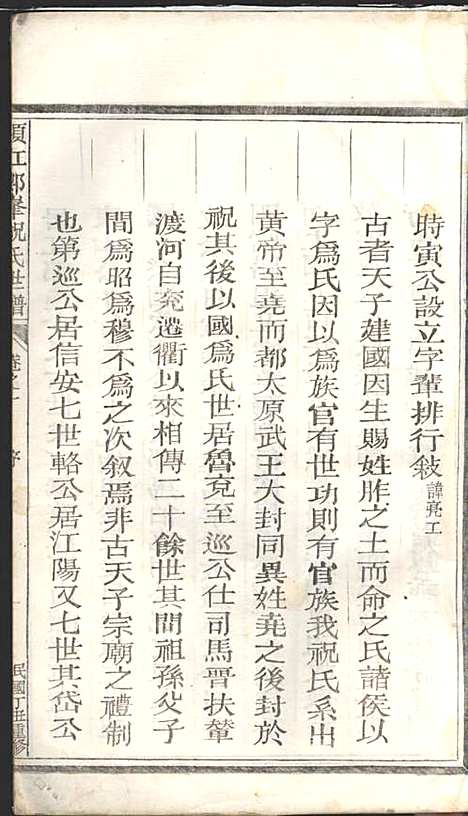 時寅公設立字輩排行敍 諱亮工
古者天子建國因生賜姓胙之土而命之氏諸侯以
字爲氏因以爲族官有世功則有官族我祝氏系出
黃帝至堯而都太原武王大封同異姓堯之後封於
祝其後以國爲氏世居魯兗至巡公仕司馬晋扶輦
渡河自兗遷衢以來相傳二十餘世其間祖孫父子
間爲昭爲穆不爲之次叙焉非古天子宗廟之禮制
也第巡公居信安七世輅公居江陽又七世其岱公
江郎峯祝氏世譜 卷之一 序
民國丁丑重修